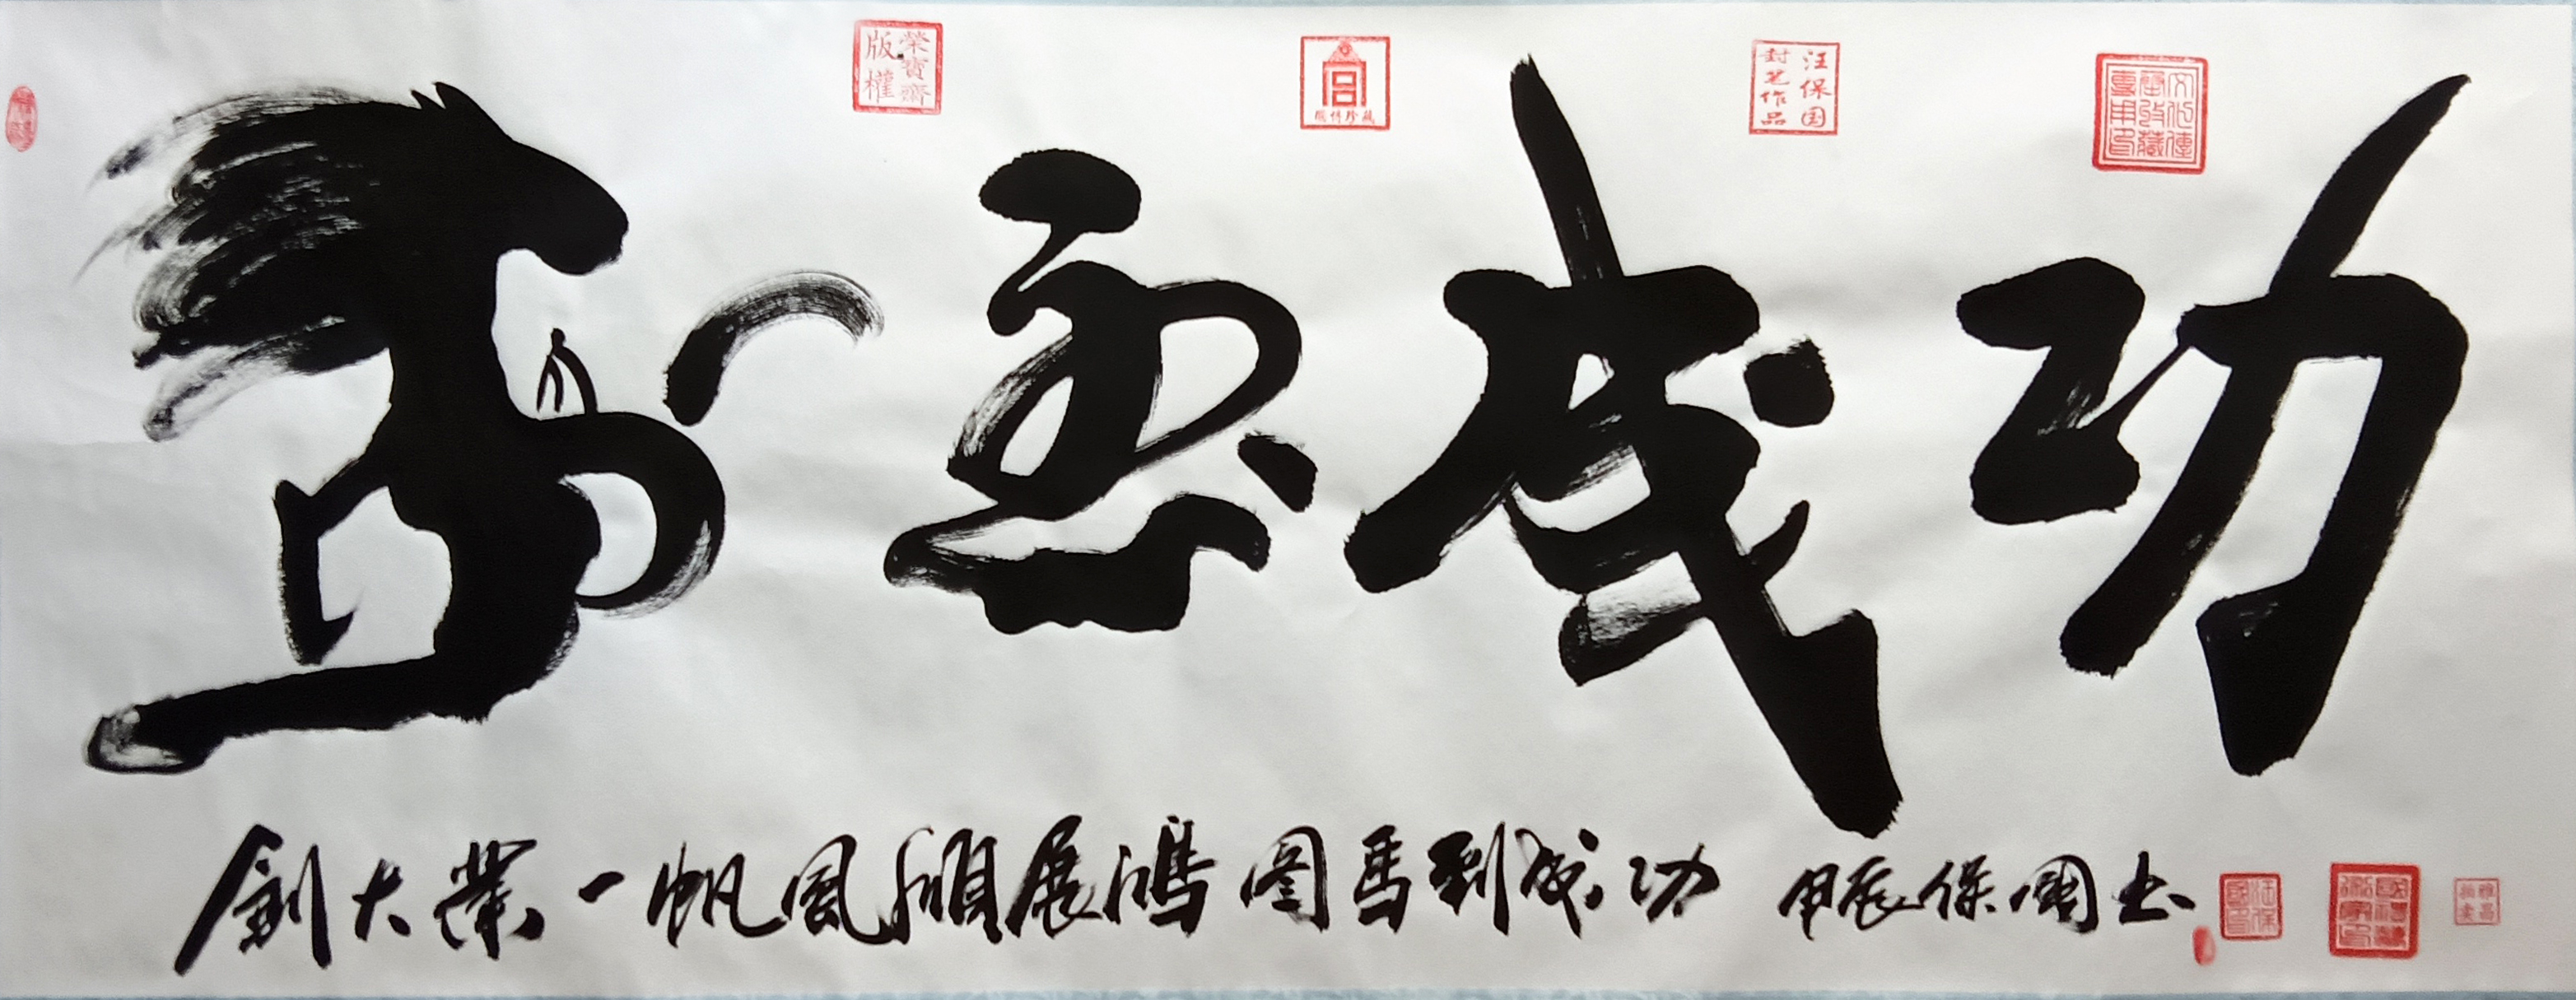 馬到成功
創大業一帆風順展鴻圖馬到成功 甲辰保國书
榮寶齋版權
汪保国封笔作品
汪保國印